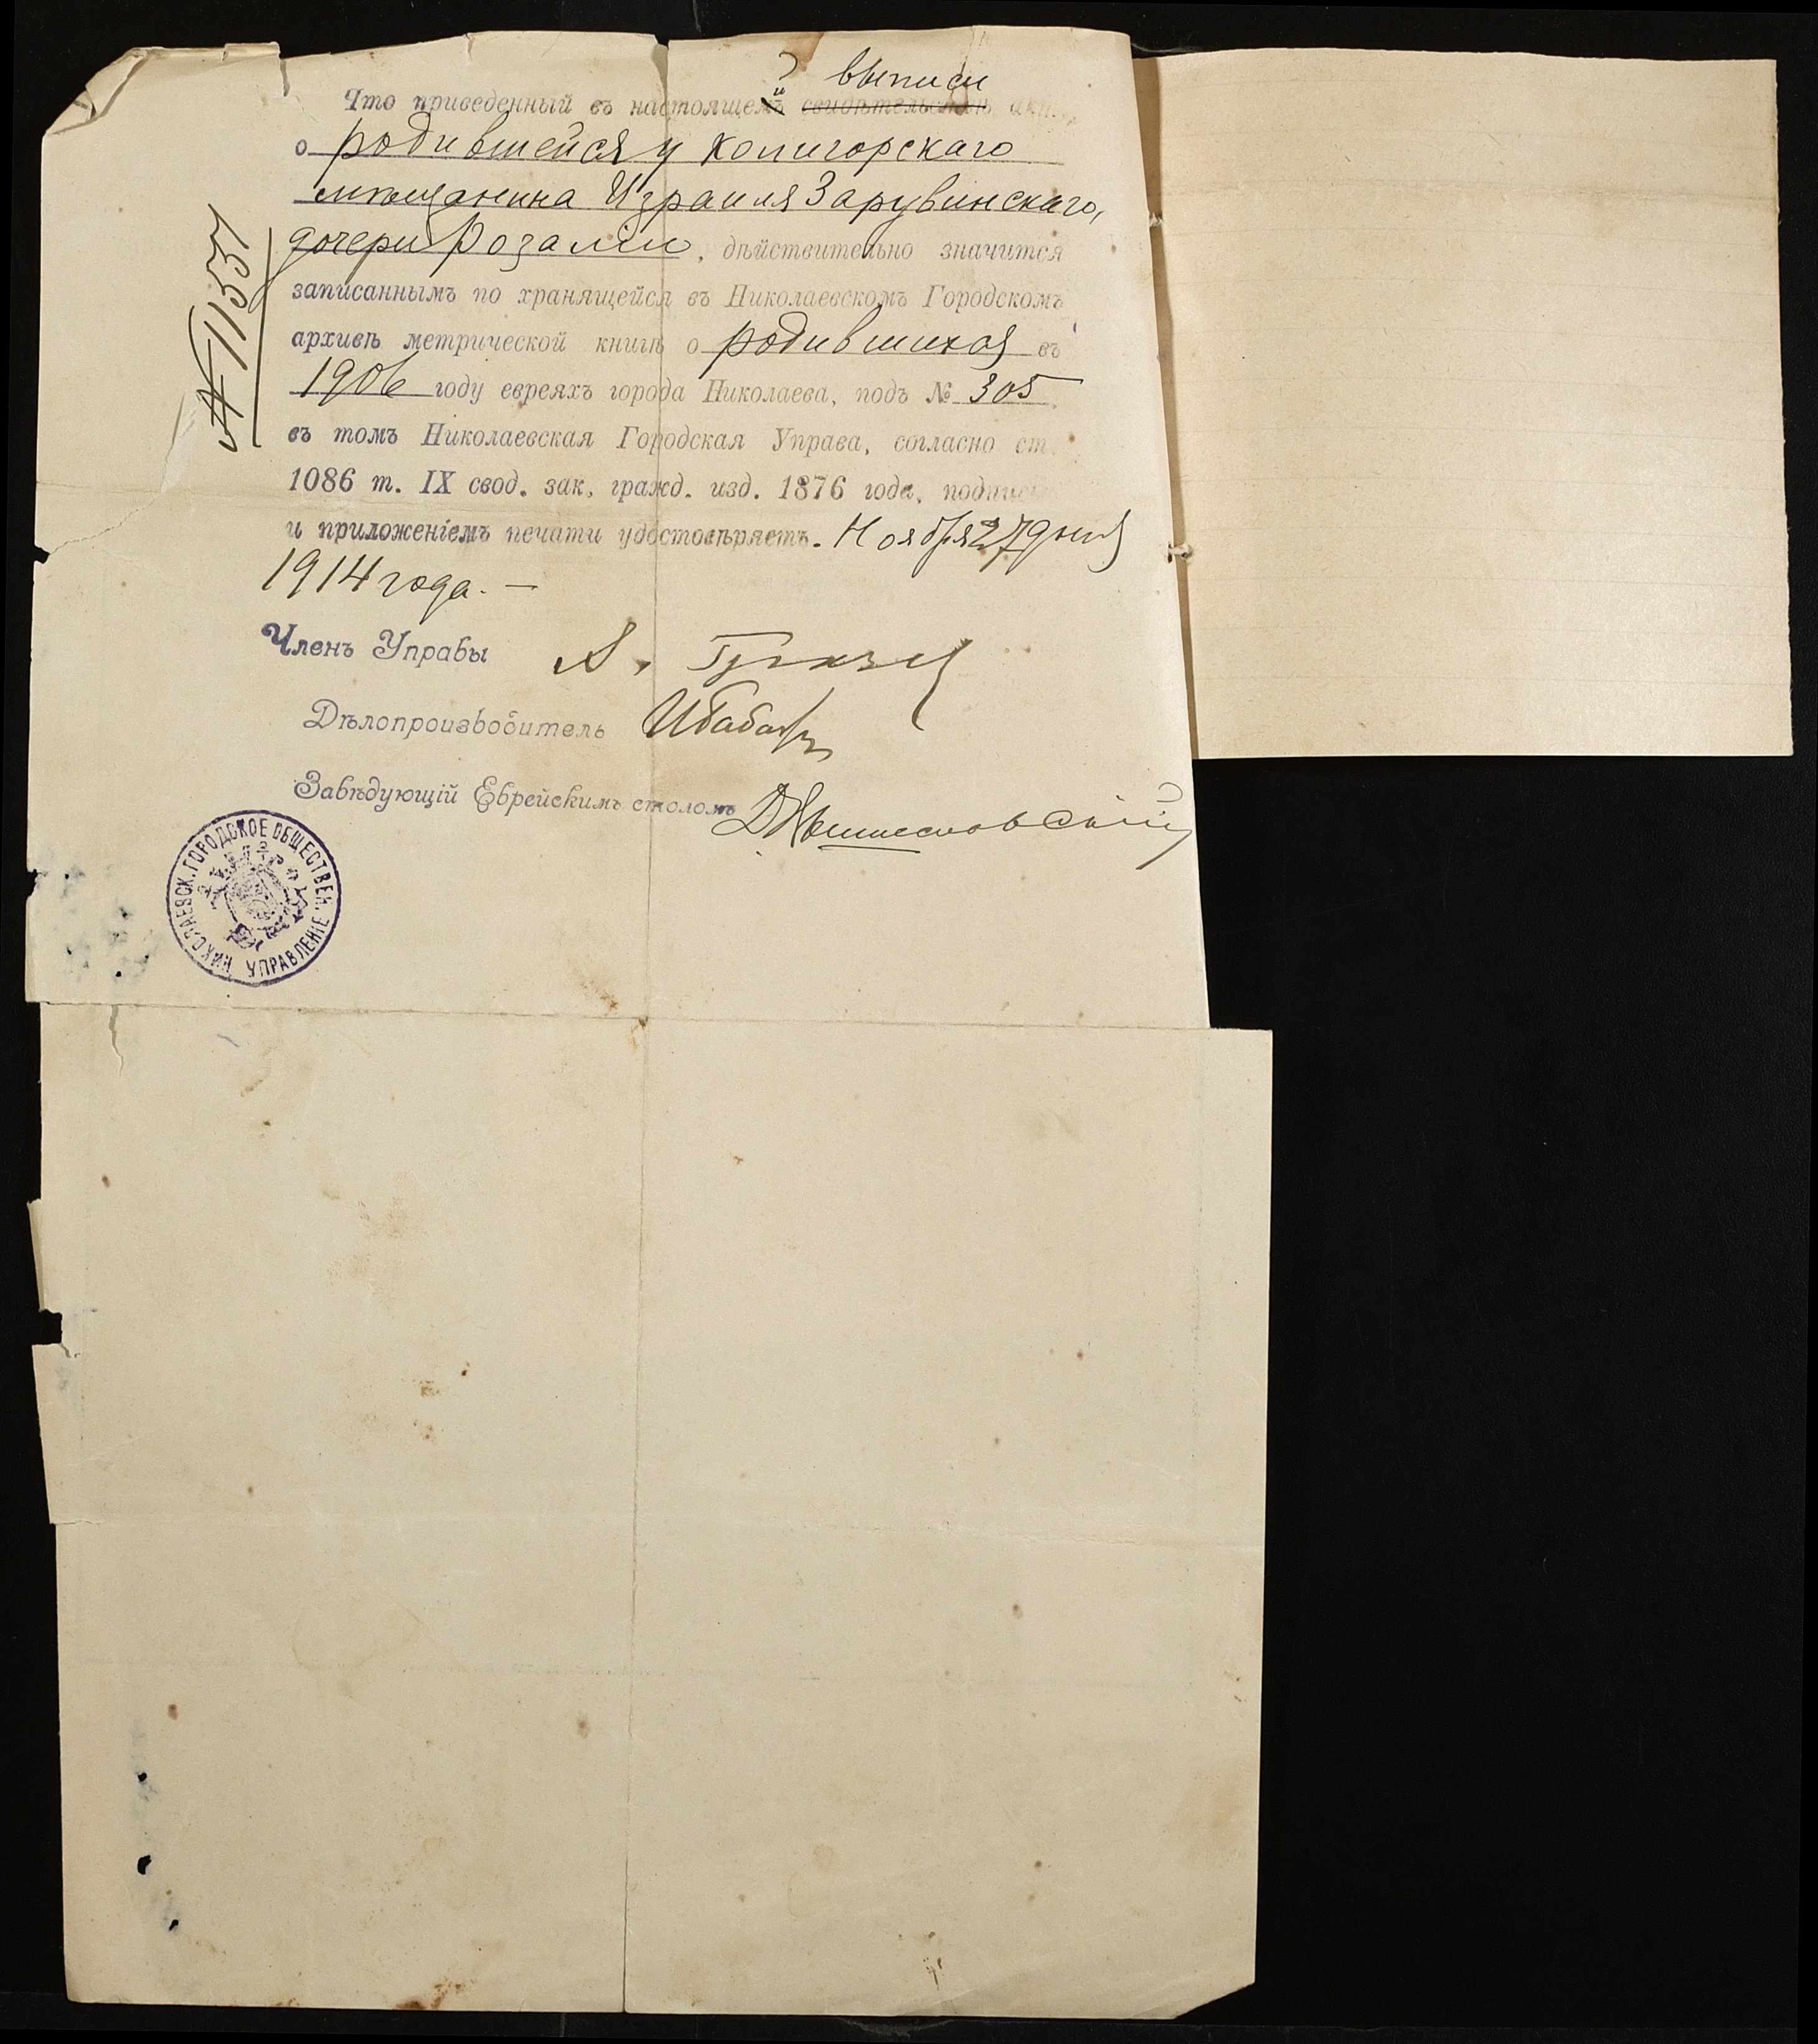 выписи
Что приведенный въ настоящей свидѣтельствѣ
о родившейся у Копигорскаго
мѣщанина Израиля Зарувинскаго,
дочери Розаліи, дѣйствительно значится
записаннымъ по хранящейся въ Николаевскомъ Городскомъ
архивѣ метрической книгѣ о родившихся въ
1906 году евреяхъ города Николаева, подъ № 305
въ томъ Николаевская Городская Управа, согласно ст.
1086 т. IX свод. зак. гражд. изд. 1876 года,
и приложеніемъ печати удостовѣряетъ. Ноября 27 дня
1914 года. —
Членъ Управы А.
Дѣлопроизводитель
Завѣдующій Еврейскимъ столомъ
№ 11551
НИКОЛАЕВСК. ГОРОДСКОЕ ОБЩЕСТВЕН. УПРАВЛЕНІЕ